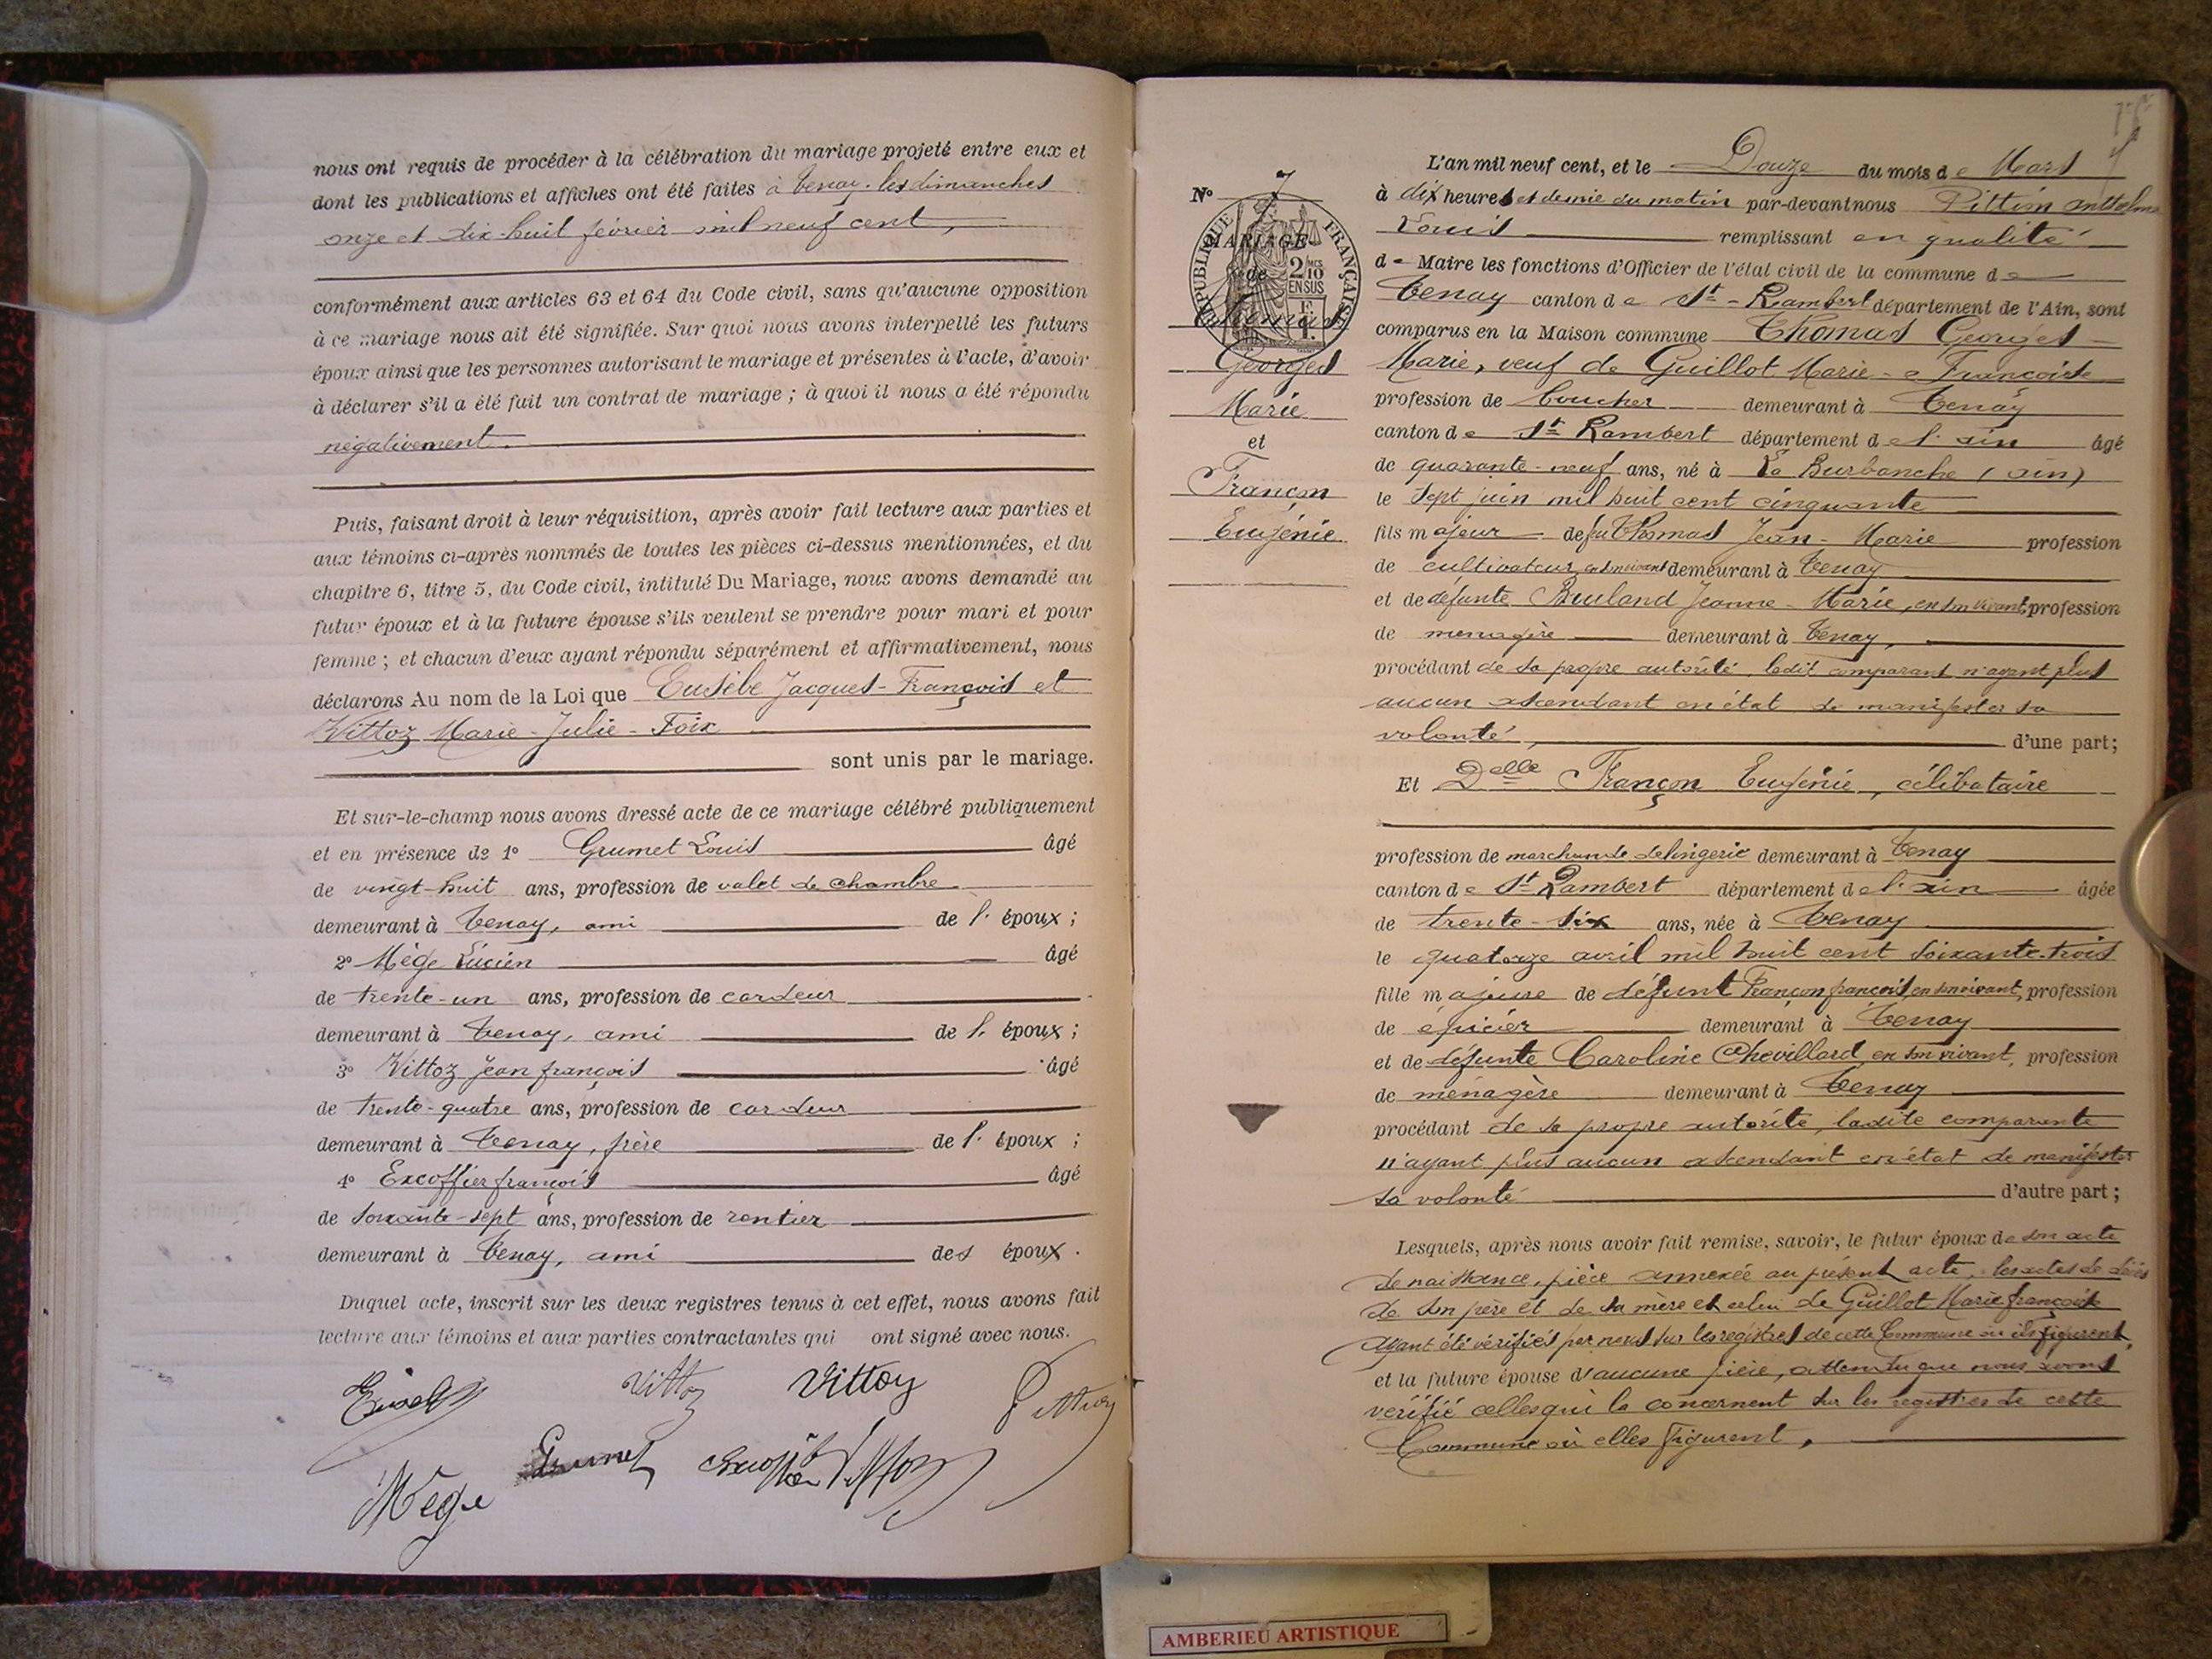 nous ont requis de procéder à la célébration du mariage projeté entre eux et
dont les publications et affiches ont été faites à Tenay. les dimanches
onze et dix-huit février mil neuf cent,
conformément aux articles 63 et 64 du Code civil, sans qu'aucune opposition
à ce mariage nous ait été signifiée. Sur quoi nous avons interpellé les futurs
époux ainsi que les personnes autorisant le mariage et présentes à l'acte, d'avoir
à déclarer s'il a été fait un contrat de mariage ; à quoi il nous a été répondu
négativement.
Puis, faisant droit à leur réquisition, après avoir fait lecture aux parties et
aux témoins ci-après nommés de toutes les pièces ci-dessus mentionnées, et du
chapitre 6, titre 5, du Code civil, intitulé Du Mariage, nous avons demandé au
futur époux et à la future épouse s'ils veulent se prendre pour mari et pour
femme ; et chacun d'eux ayant répondu séparément et affirmativement, nous
déclarons Au nom de la Loi que Eusèbe Jacques-François et
Vittoz Marie-Julie-Foix
sont unis par le mariage.
Et sur-le-champ nous avons dressé acte de ce mariage célébré publiquement
et en présence de 1° Grumet Louis âgé
de vingt-huit ans, profession de valet de chambre
demeurant à Tenay, ami de l' époux ;
2° Mège Lucien âgé
de trente-un ans, profession de cardeur
demeurant à Tenay, ami de l' époux ;
3° Vittoz Jean françois âgé
de trente-quatre ans, profession de cardeur
demeurant à Tenay, frère de l' époux ;
4° Excoffier françois âgé
de soixante-sept ans, profession de rentier
demeurant à Tenay, ami des époux.
Duquel acte, inscrit sur les deux registres tenus à cet effet, nous avons fait
lecture aux témoins et aux parties contractantes qui ont signé avec nous.
Vittoz Vittoz
Grumet
Mège
N° 7
MARIAGE
de
Thomas
Georges
Marie
et
Françon
Eugénie
RÉPUBLIQUE FRANÇAISE
2/10
EN SUS
L'an mil neuf cent, et le Douze du mois de Mars
à dix heures et demie du matin par-devant nous Pittion Anthelme
Louis remplissant en qualité
de Maire les fonctions d'Officier de l'état civil de la commune de
Tenay canton de St-Rambert département de l'Ain, sont
comparus en la Maison commune Thomas Georges
Marie, veuf de Guillot Marie-Françoise
profession de boucher demeurant à Tenay
canton de St Rambert département de l'ain âgé
de quarante-neuf ans, né à La Burbanche (ain)
le sept juin mil huit cent cinquante
fils majeur de feu Thomas Jean-Marie profession
de cultivateur, en son vivant demeurant à Tenay
et de défunte Bruland Jeanne-Marie, en son vivant, profession
de menagère demeurant à Tenay,
procédant de sa propre autorité, ledit comparant n'ayant plus
aucun ascendant en état de manifester sa
volonté, d'une part;
Et Delle Françon Eugénie, célibataire
profession de marchande de lingerie demeurant à Tenay
canton de St Rambert département de l'ain âgée
de trente-six ans, née à Tenay
le quatorze avril mil huit cent soixante-trois
fille majeure de défunt Françon françois, en son vivant, profession
de épicier demeurant à Tenay
et de défunte Caroline Chevillard, en son vivant, profession
de ménagère demeurant à Tenay
procédant de sa propre autorité, ladite comparante
n'ayant plus aucun ascendant en état de manifester
sa volonté d'autre part ;
Lesquels, après nous avoir fait remise, savoir, le futur époux de son acte
de naissance, pièce annexée au présent acte, les actes de décès
de son père et de sa mère et celui de Guillot Marie françoise
ayant été vérifiés par nous sur les registres de cette Commune où ils figurent,
et la future épouse d'aucune pièce, attendu que nous avons
vérifié celles qui la concernent sur les registres de cette
Commune où elles figurent,
AMBERIEU ARTISTIQUE